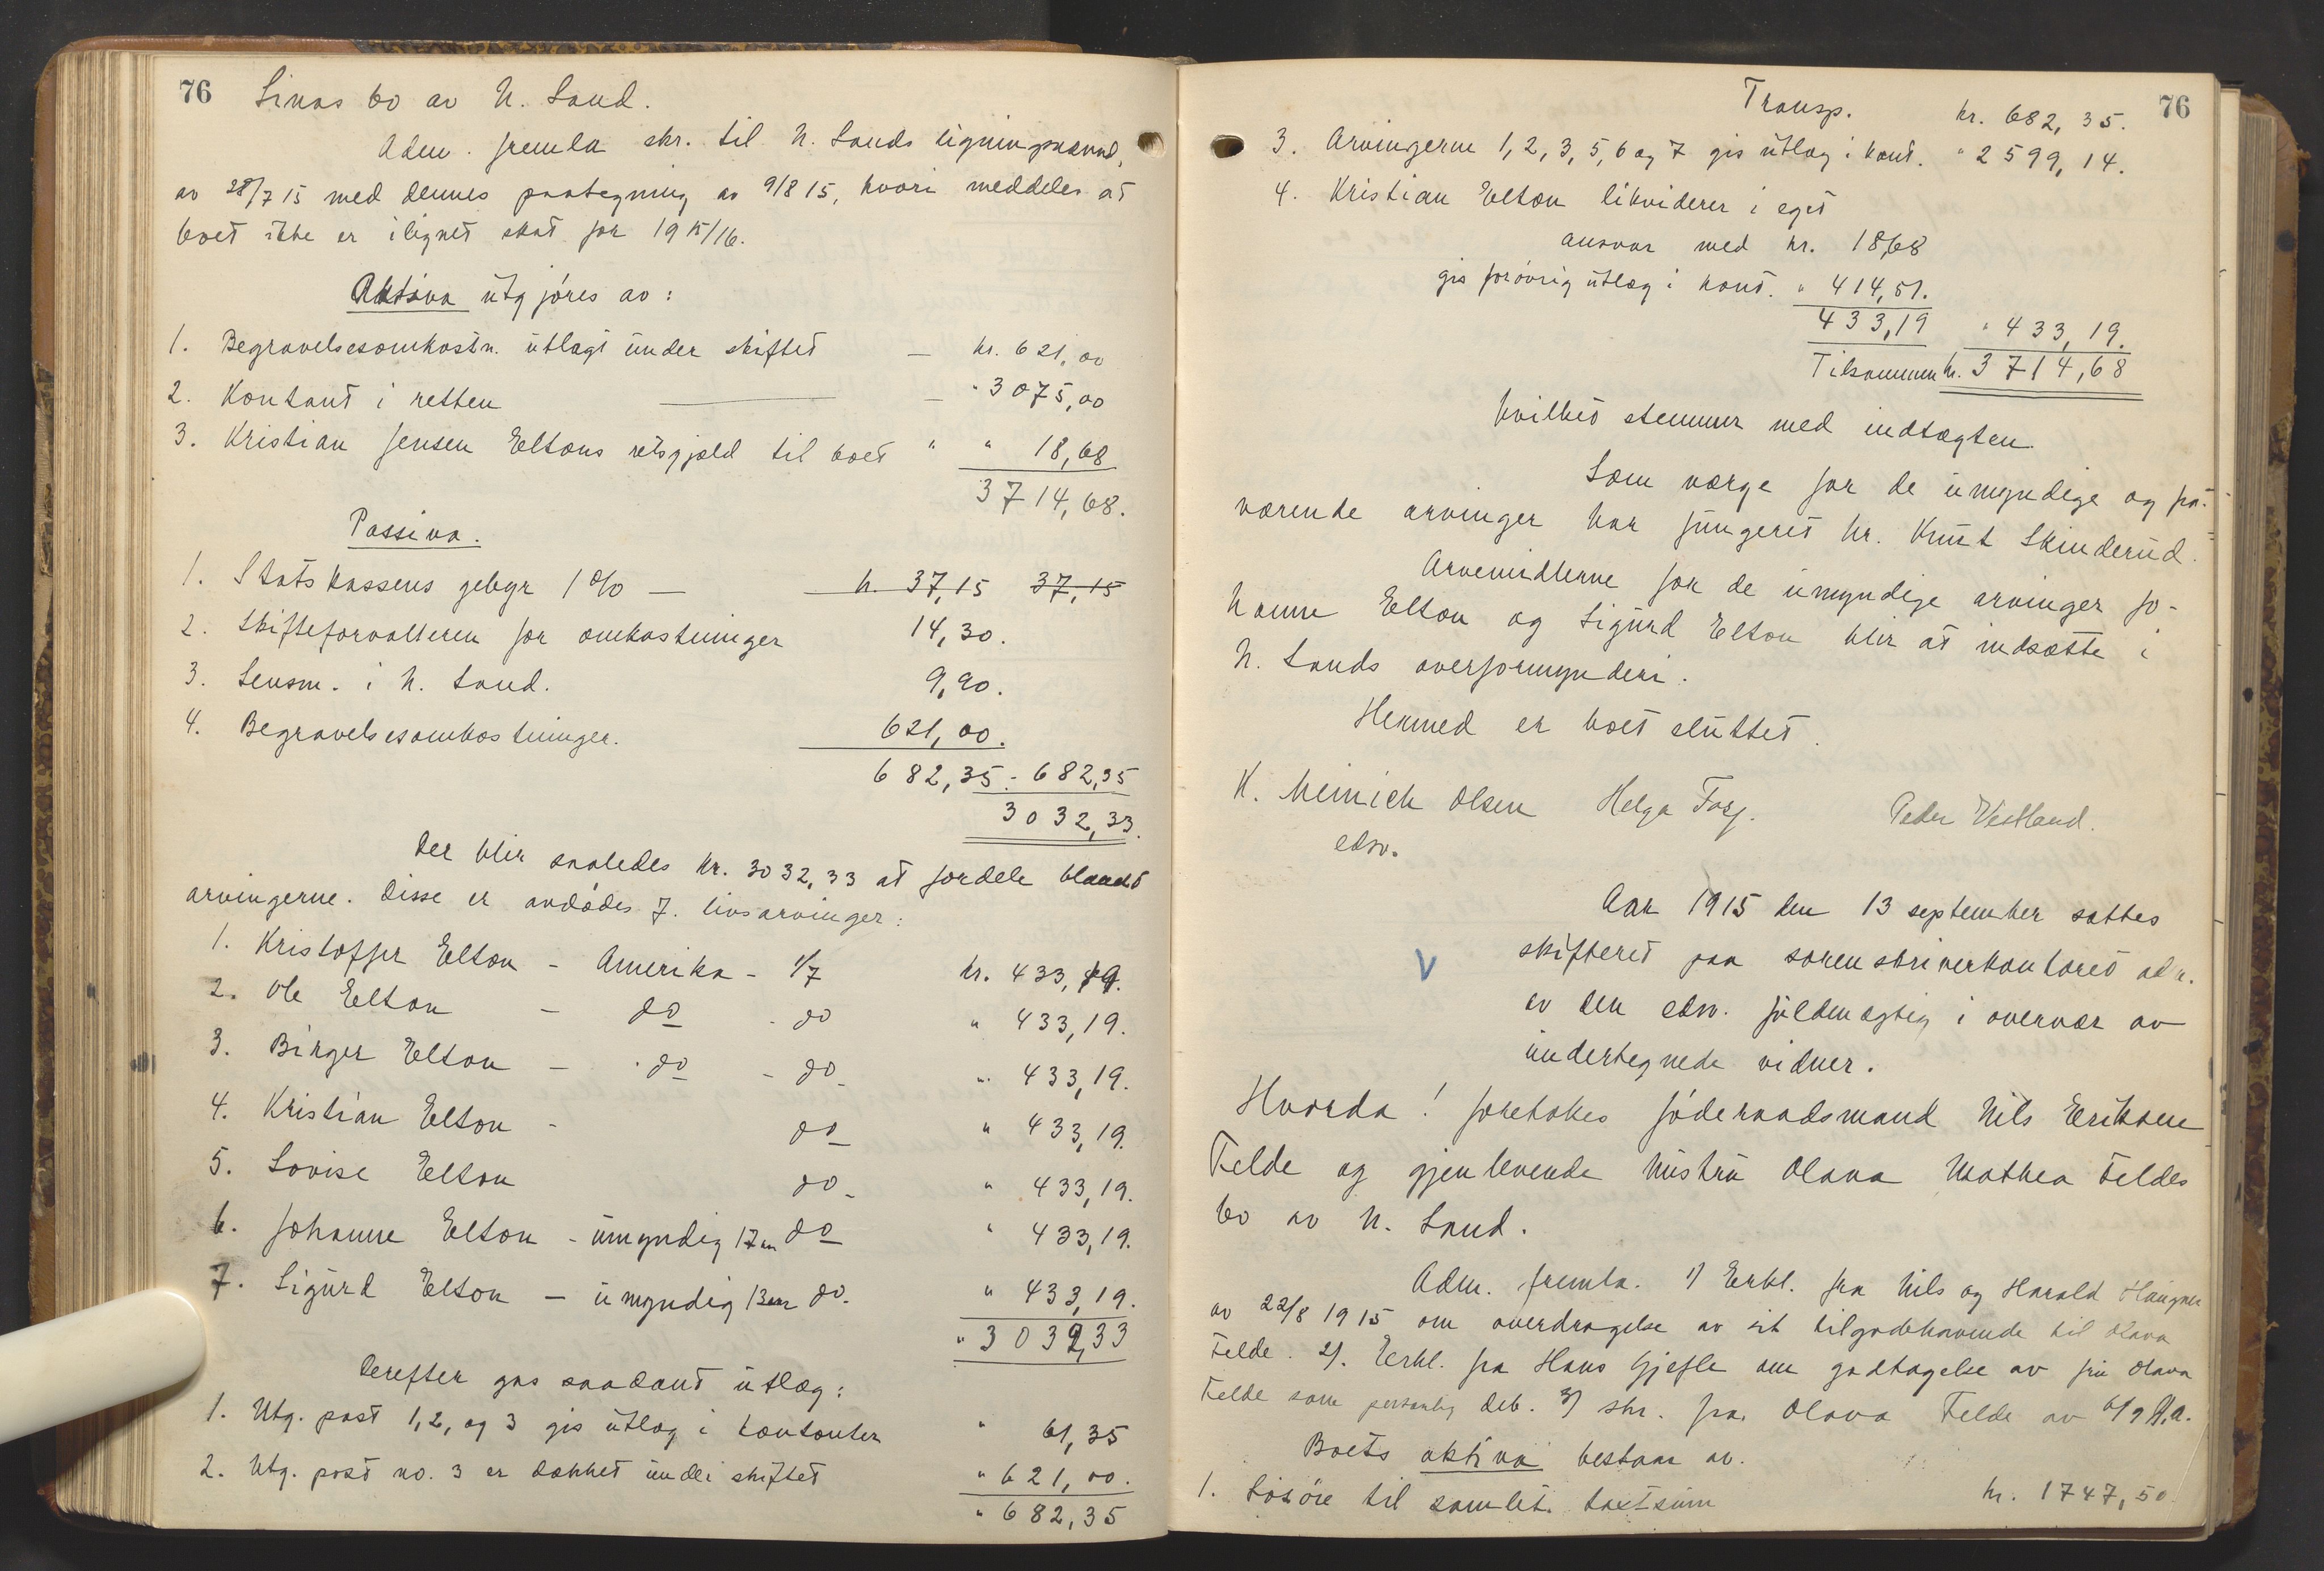 76 Linas bo av N. Land.
Adm. fremla skr. til N. Lands ligningsnævnd,
av 28/7 15 med dennes paategning av 9/8 15, hvori meddeles at
boet ikke er ilignet skat for 1915/16.
Aktiva utgjøres av:
1. Begravelsesomkostn. utlagt under skiftet — kr. 621,00
2. Kontant i retten — " 3075,00
3. Kristian Jensen Eltons gjæld til boet " " 18,68
3714,68.
Passiva.
1. Statskassens gebyr 1 % — kr. 37,15 37,15
2. Skifteforvalteren for omkostninger 14,30.
3. Lensm. i N. Land. 9,90.
4. Begravelsesomkostninger. 621,00.
682,35 - 682,35
3032,33.
Der blir saaledes kr. 3032,33 at fordele blandt
arvingerne. Disse er avdødes 7. livsarvinger:
1. Kristoffer Elton - Amerika - 1/7 kr. 433,19.
2. Ole Elton - do - do " 433,19.
3. Birger Elton - do - do - " 433,19.
4. Kristian Elton - do " 433,19.
5. Lovise Elton do - " 433,19.
6. Johanne Elton - umyndig 17 aar do " 433,19.
7. Sigurd Elton - umyndig 13 aar do. " 433,19.
" 3032,33
Derefter gas saadant utlæg:
1. Utg. post 1, 2, og 3 gis utlæg i kontanter " 61,35
2. Utg. post no. 3 er dækket under skiftet " 621,00.
" 682,35
76
Transp. kr. 682,35.
3. Arvingerne 1, 2, 3, 5, 6 og 7 gis utlæg i kont. " 2599,14.
4. Kristian Elton likviderer i eget
ansvar med kr. 18,68
gis forøvrig utlæg i kont. " 414,51.
433,19 " 433,19.
Tilsammen kr. 3714,68
hvilket stemmer med indtægten.
Som værge for de umyndige og fra-
værende arvinger har fungeret hr. Knut Skinderud.
Arvemidlerne for de umyndige arvinger Jo-
hanne Elton og Sigurd Elton blir at indsætte i
N. Lands overformynderi.
Hermed er boet sluttet.
K. Meinich Olsen Helga Peder Vestland.
edsv.
Aar 1915 den 13 september sattes
V skifteret paa sorenskriverkontoret adm.
av den edsv. fuldmægtig i overvær av
undertegnede vidner.
Hvorda! foretokes føderaadsmand Nils Eriksen
Felde og gjenlevende hustru Olava Mathea Feldes
bo av N. Land.
Adm. fremla. 1) Erkl. fra Nils og Harald Haugner
av 22/8 1915 om overdragelse av sit tilgodehavende til Olava
Felde. 2). Erkl. fra Hans Gjefle om godtagelse av fru Olava
Felde som personlig deb. 3) skr. fra Olava Felde av 6/9 d.a.
Boets aktiva bestaar av.
1. Løsøre til samlet takstsum kr. 1747,50